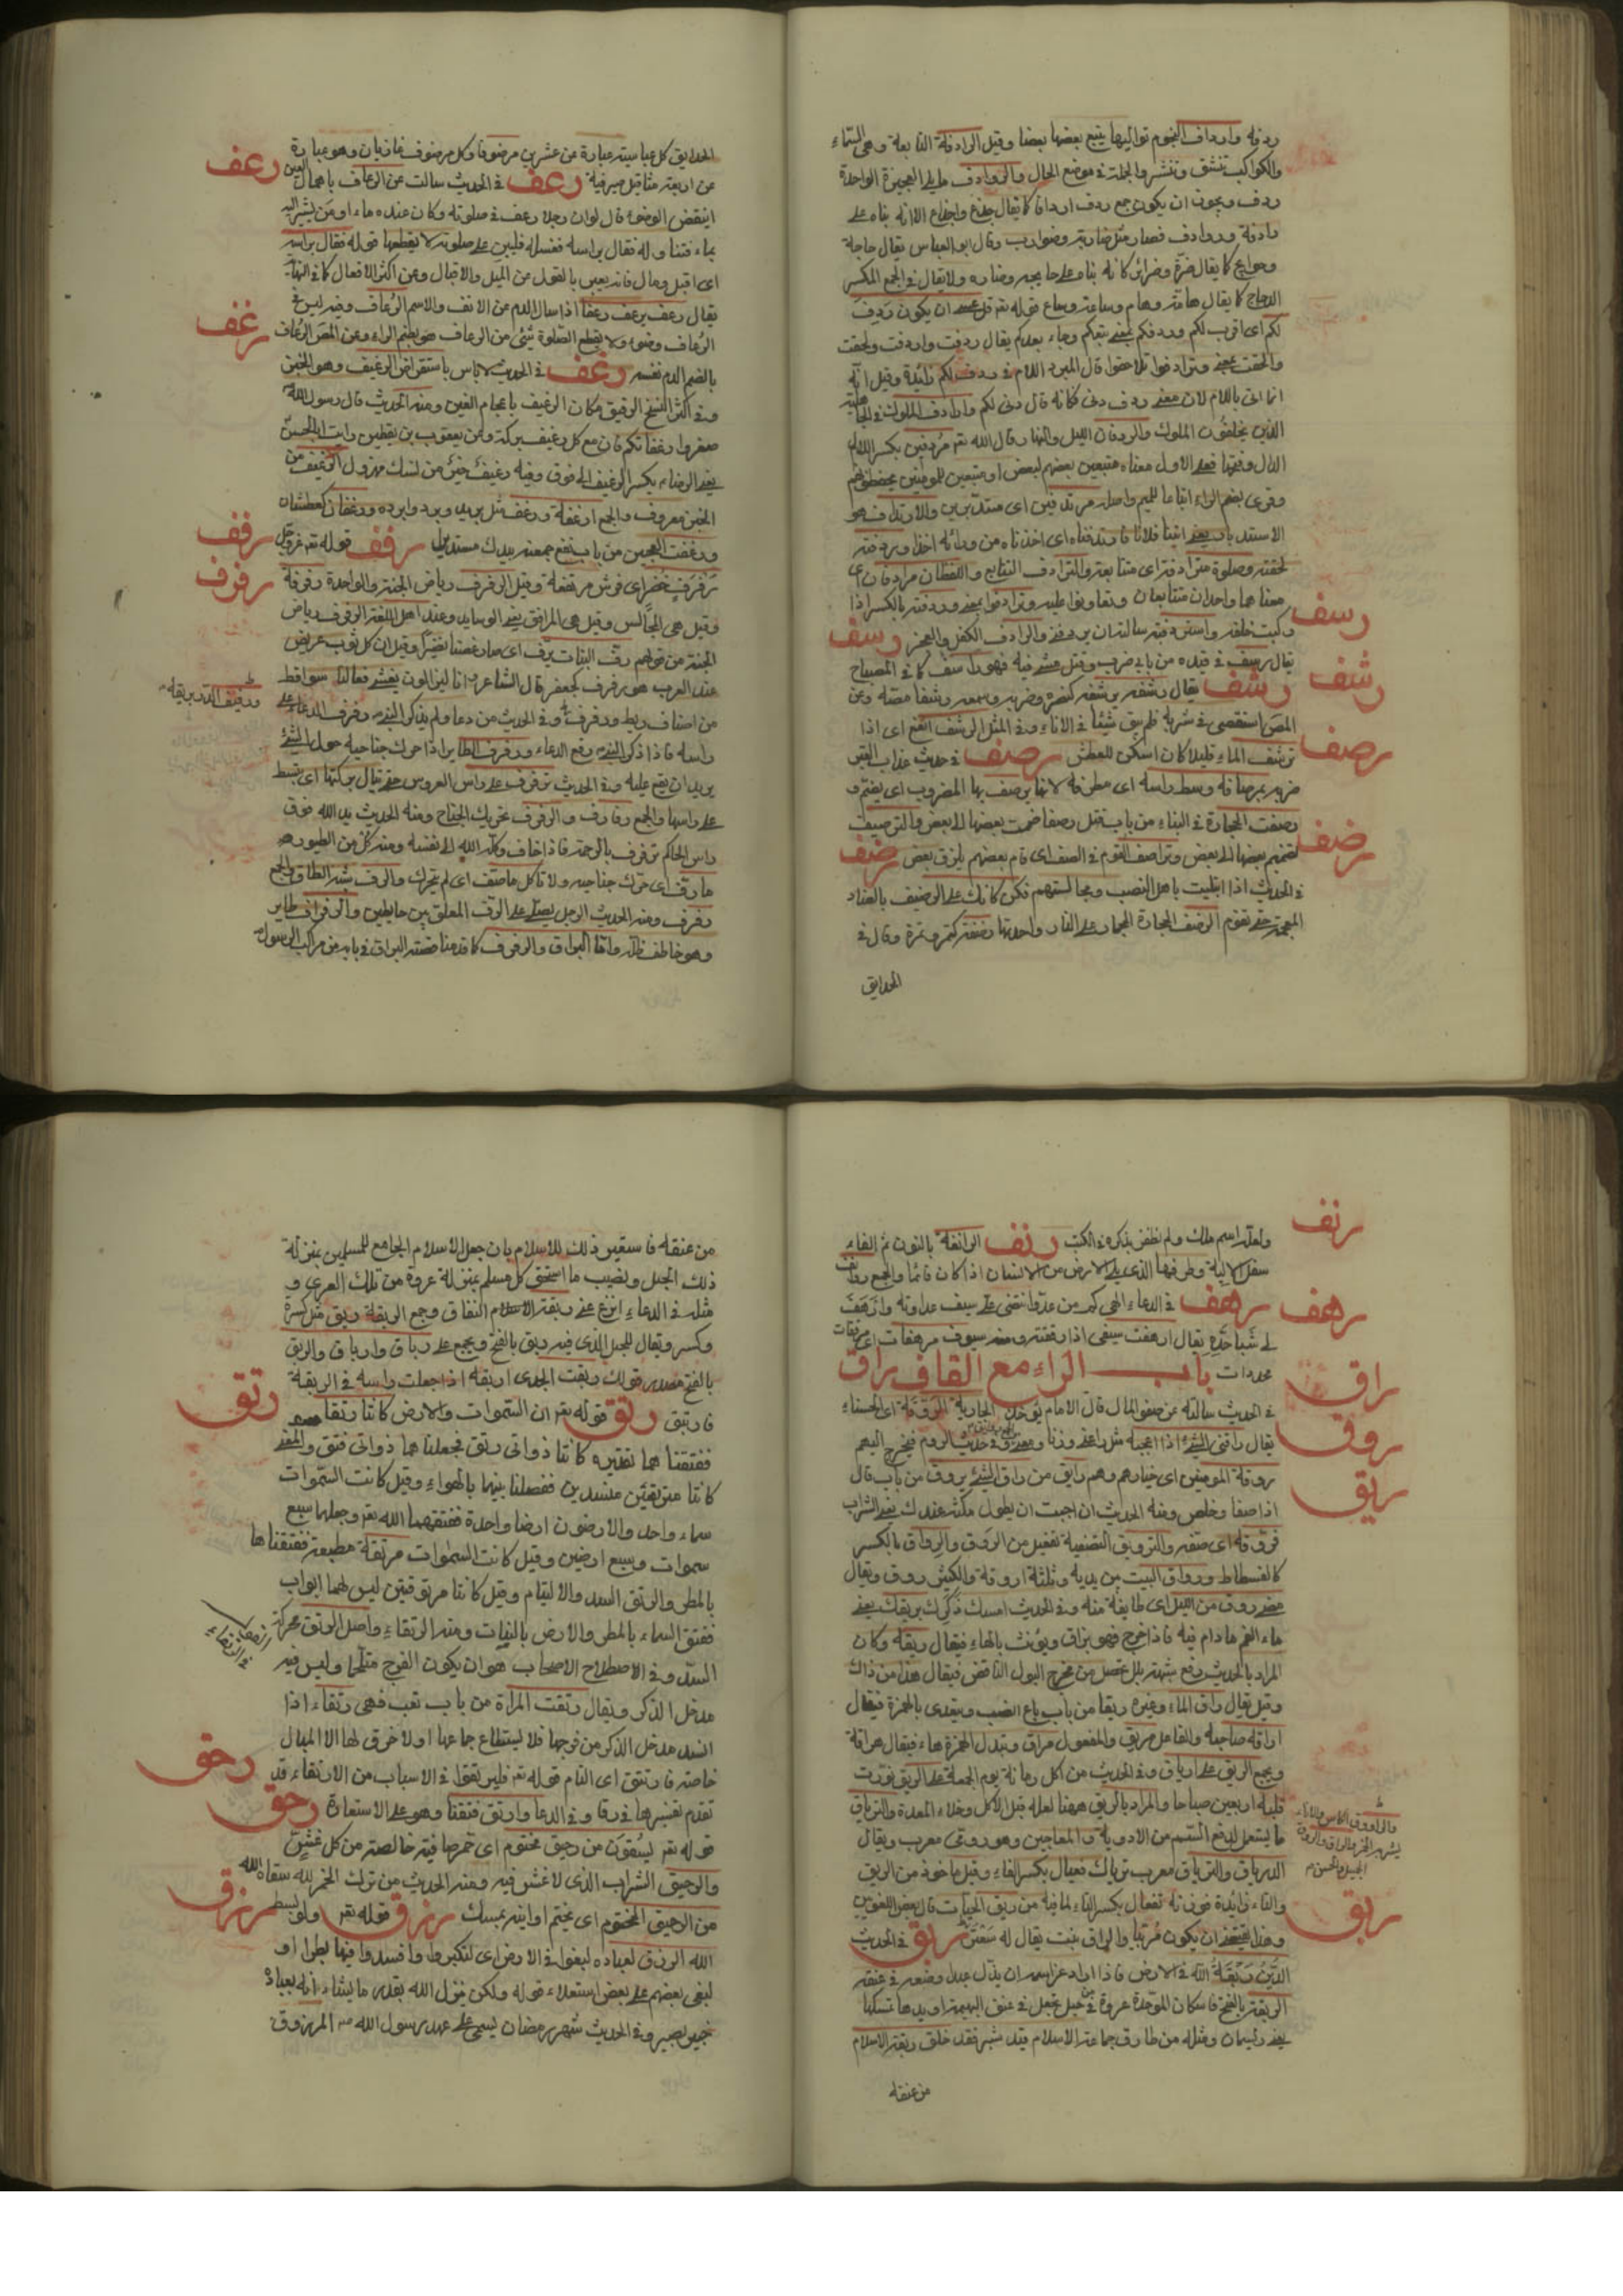 ردفه وارداف النجوم تواليها يتبع بعضها بعضا وقيل الرادفة التابعة وهي السماء
والكواكب تنشق وتنتشر والجملة في موضع الحال والروادف
ردف ويجوز ان يكون جمع ردف ارداف كما يقال
رادفة وروادف فصار مثل ضاربة وضوارب وقال ابو العباس يقال حاجة
لكم اي اقرب لكم وردفكم بمعنى تبعكم وجاء بعدكم يقال ردفت واردفت ولحقت
والحقت بمعنى وترادفوا تلاحقوا قال المبرد اللام في ردف لكم زائدة وقيل انه
انما اتى باللام لان معنى ردف دنى فكانه قال دنى لكم وارداف الملوك في الجاهلية
الذين يخلفون الملوك والردفان الليل والنهار قال الله تعم مردفين بكسر
الدال وفتحها فعلى الاول معناه متبعين بعضهم لبعض او متبعين للمؤمنين يحفظونهم
الاستدبار يعني اتينا فلانا فارتدفناه اي اخذناه من ورائه اخذا وردفته
لحقته وصلوة مترادفة اي متتابعة والترادف التتابع واللفظان مرادفان اي
معناهما واحد
ركبت خلفه واستردفته سالته ان يردفه والرادف الكفل والعجز رسف
رسف
يقال رسف في قيده من بابي ضرب وقتل مشى فيه فهو راسف كما في المصباح
رشف
رشف يقال رشفه يرشفه كنصره وضربه وسمعه رشفا مصه وعن
المص استقصى في شربه فلم يبق شيئا في الاناء وفي المثل الرشف انقع اي اذا
رصف
ترشف الماء قليلا كان اسكن للعطش رصف في حديث عذاب القبر
ضربه بمرصافة وسط راسه اي مطرقة لانها يرصف بها المضروب اي يضم و
رصفت الحجارة في البناء من باب قتل رصفا ضممت بعضها الى بعض والترصيف
رضف
لضم بعضها الى بعض وتراصف القوم في الصف اي قام بعضهم بلزق بعض رضف
في الحديث اذا ابتليت باهل النصب ومجالستهم فكن كانك على الرضف بالضاد
المعجمة حتى تقوم الرضف الحجارة المحماة على النار واحدتها رضفة كتمر وتمرة وقال في
الحدايق
الحدايق كل عباسية عبارة عن عشرين مرضوفا وكل مرضوف ثمانيان وهو عبارة
رعف
عن اربعة مثاقيل صيرفية رعف في الحديث سالت عن الرعاف باهمال العين
اينقض الوضوء قال لو ان رجلا رعف في صلوته وكان عنده ماء او من يشير اليه
بماء فتناوله فقال براسه فغسله فليبن على صلوته لا يقطعها قوله فقال براسه
اي اقبل ومال فانه يعبر بالقول عن الميل والاقبال وعن اكثر الافعال كما في النهاية
يقال رعف يرعف رعفا اذا سال الدم من الانف والاسم الرعاف وفيه ليس في
رغف
الرعاف وضوء ولا يقطع الصلوة شيء من الرعاف هو بضم الراء وعن المص الرعاف
بالضم الدم نفسه رغف في الحديث لا باس باستقراض الرغيف وهو الخبز
وفي اكثر النسخ الرقيق مكان الرغيف باعجام الغين ومنه الحديث قال رسول الله
صغروا رغفانكم فان مع كل رغيف بركة وعن يعقوب بن يقطين رايت ابا الحسن
يعني الرضاء يكسر الرغيف الى فوق وفيه رغيف خير من نسك مهزول الرغيف من
الخبز معروف والجمع ارغفة ورغف مثل بريد وبرد وابرده ورغفان كعطشان
رفف
ورغفت العجين من باب نفع جمعته بيدك مستديرا رفف قوله تعم عز وجل
رفرف
رفرف خضر اي فرش مرتفعة وقيل الرفرف رياض الجنة والواحدة رفرفة
وقيل هي المجالس وقيل هي المرافق يعني الوسايد وعند اهل اللغة الرفرف رياض
الجنة من قولهم رف النبات يرف اي صار غضا نضيرا وقيل ان كل ثوب عريض
عند العرب هو رفرف
راسه فاذا ذكر النبي رفع الدعاء ورفرف الطاير اذا حرك جناحيه حول الشيء
يريد ان يقع عليه وفي الحديث ترفرف على راس العروس
على راسها والجمع رفارف والرفرف تحريك الجناح ومنه الحديث يد الله فوق
راس الحاكم ترفرف بالرحمة فاذا خاف وكله الله الى نفسه ومنه كل من الطيور
ما رف اي حرك جناحيه ولا تاكل ما صف اي لم يتحرك والرف شبه الطاق والجمع
رفوف ومنه الحديث الرجل يصلي على الرف المعلق بين حايطين والرفراف طاير
وهو خاطف ظله واما البراق والرفرف كما قدمنا قصته البراق في بابه من مراكب الرسول
رنف
ولعله اسم ملك ولم نظفر بذكره في الكتب رنف الرانفة بالنون ثم الفاء
سفل الالية وطرفها الذي يلي الارض من الانسان اذا كان قائما والجمع روانف
رهف
رهف في الدعاء الهي كم من عدو انتضى علي سيف عداوته وارهف
لي شبا حده يقال ارهفت سيفي اذا رققته ومنه سيوف مرهفات اي مرققات
محددات باب الراء مع القاف راق
راق
في الحديث سالته عن صفو المال قال الامام يوخذ الجارية الروقة اي الحسناء
روق
يقال راقني الشيء اذا اعجبه
روقة المؤمنين اي خيارهم وهم رايق من راق الشيء يروق من باب قال
ريق
اذا صفا وخلص ومنه الحديث ان احببت ان يطول مكثه عندك يعني الشراب
فروقه اي صفه والترويق التصفية تفعيل من الروق والرواق بالكسر
كالفسطاط ورواق البيت بين يديه وثلثة اروقة والكثير روق ويقال
مضى روق من الليل اي طايفة منه وفي الحديث امسك ذكرك بريقك يعني
ماء الفم ما دام فيه فاذا خرج فهو بزاق ويؤنث بالهاء فيقال ريقة وكان
المراد بالحديث رفع شبهة بلل يحصل من مخرج البول الناقض فيقال هذا من ذاك
وقيل يقال راق الماء وغيره ريقا من باب باع انصب ويتعدى بالهمزة فيقال
اراقه صاحبه والفاعل مريق والمفعول مراق وتبدل الهمزة هاء فيقال هراقه
ويجمع الريق على ارياق وفي الحديث من اكل رمانة يوم الجمعة على الريق نورت
قلبه اربعين صباحا والمراد بالريق ههنا لعله قبل الاكل وخلاء المعدة والترياق
ما يستعمل لدفع السم من الادوية والمعاجين وهو رومي معرب ويقال
الدرياق والترياق معرب ترياك فعيال بكسر الفاء وقيل ماخوذ من الريق
والتاء زايدة فوزنه تفعال بكسر التاء لما فيه من ريق الحيات قال بعض اللغويين
ربق
ربق في الحديث
الدين ربقة الله في الارض فاذا اراد عز اسمه ان يذل عبدا وضعه في عنقه
الربقة بالفتح فاسكان الموحدة عروة في حبل تجعل في عنق البهيمة او يدها تمسكها
ومثله من فارق جماعة الاسلام قيد شبر فقد خلع ربقة الاسلام
من عنقه
من عنقه فاستعير ذلك للاسلام بان جعل الاسلام الجامع للمسلمين بمنزلة
ذلك الحبل ونصيب ما استحق كل مسلم بمنزلة عروة من تلك العرى و
مثله في الدعاء انزع عني ربقة النفاق وجمع الربقة ربق مثل كسرة
وكسر ويقال للحبل الذي فيه ربق بالفتح ويجمع على رباق وارباق والربق
بالفتح مصدر قولك ربقت الجدي اربقه اذا جعلت راسه في الربقة
رتق
فارتبق رتق قوله تعم ان السموات والارض كانتا رتقا
ففتقناهما تقديره كانتا ذواتي رتق فجعلناهما ذواتي فتق والمعنى
كانتا مرتتقين منسدين ففصلنا بينهما بالهواء وقيل كانت السموات
سماء واحد والارضون ارضا واحدة ففتقهما الله تعم وجعلها سبع
سموات وسبع ارضين وقيل كانت السموات مرتتقة مطبقة ففتقناها
بالمطر والرتق السد والالتيام وقيل كانتا مرتوقتين ليس لهما ابواب
ففتق السماء بالمطر والارض بالنبات ومنه الرتقاء واصل الرتق محركة
السد وفي الاصطلاح الاصحاب هو ان يكون الفرج ملتحما وليس فيه
مدخل الذكر ويقال رتقت المراة من باب تعب فهي رتقاء اذا
انسد مدخل الذكر من فرجها فلا يستطاع جماعها او لا خرق لها الا المبال
رحق
خاصة فارتتق اي التام قوله تعم فليرتقوا في الاسباب من الارتقاء قد
تقدم تفسيرها في رقا وفي الدعا وارتق فتقنا وهو على الاستعارة رحق
قوله تعم يسقون من رحيق مختوم اي خمر صافية خالصة من كل غش
والرحيق الشراب الذي لا غش فيه ومنه الحديث من ترك الخمر لله سقاه الله
رزق
من الرحيق المختوم اي يختم اوانيه بمسك رزق قوله تعم ولو بسط
الله الرزق لعباده لبغوا في الارض اي لتكبروا وافسدوا فيها بطرا او
لبغى بعضهم على بعض استعلاء قوله ولكن ينزل الله بقدر ما يشاء انه بعباده
خبير بصير وفي الحديث شهر رمضان يسمى على عهد رسول الله المرزوق